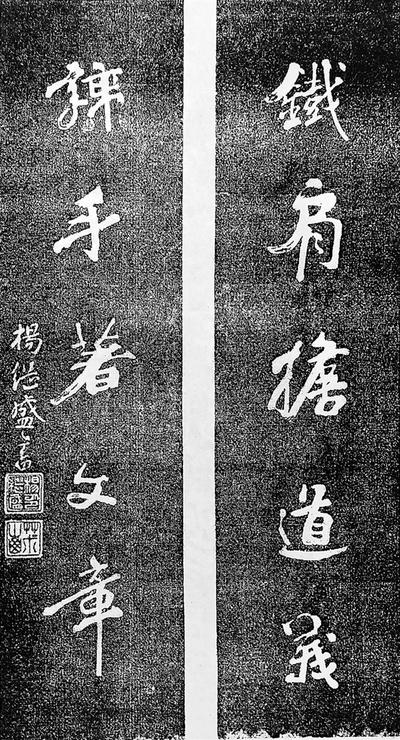 鐵肩擔道義
辣手著文章
楊継盛書